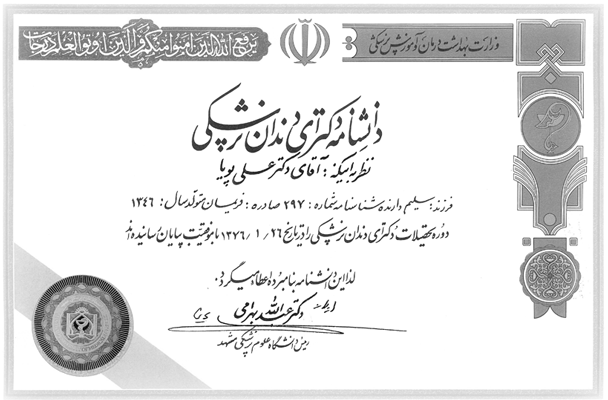 یرفع الله الذین امنوا منکم و الذین اوتوا العلم درجات
وزارت بهداشت درمان و آموزش پزشکی
دانشنامه دکترای دندان پزشکی
نظر به اینکه : آقای دکتر علی پویا
فرزند : سلیم دارنده شناسنامه شماره : ۲۹۷ صادره : فریمان متولد سال : ۱۳۴۶
دوره تحصیلات دکترای دندان پزشکی را در تاریخ ۱۳۷۶/۱/۲۶ با موفقیت بپایان رسانیده اند
لذا این دانشنامه بنامبرده اعطاء میگردد .
دکتر عبدالله بهرامی
رئیس دانشگاه علوم پزشکی مشهد